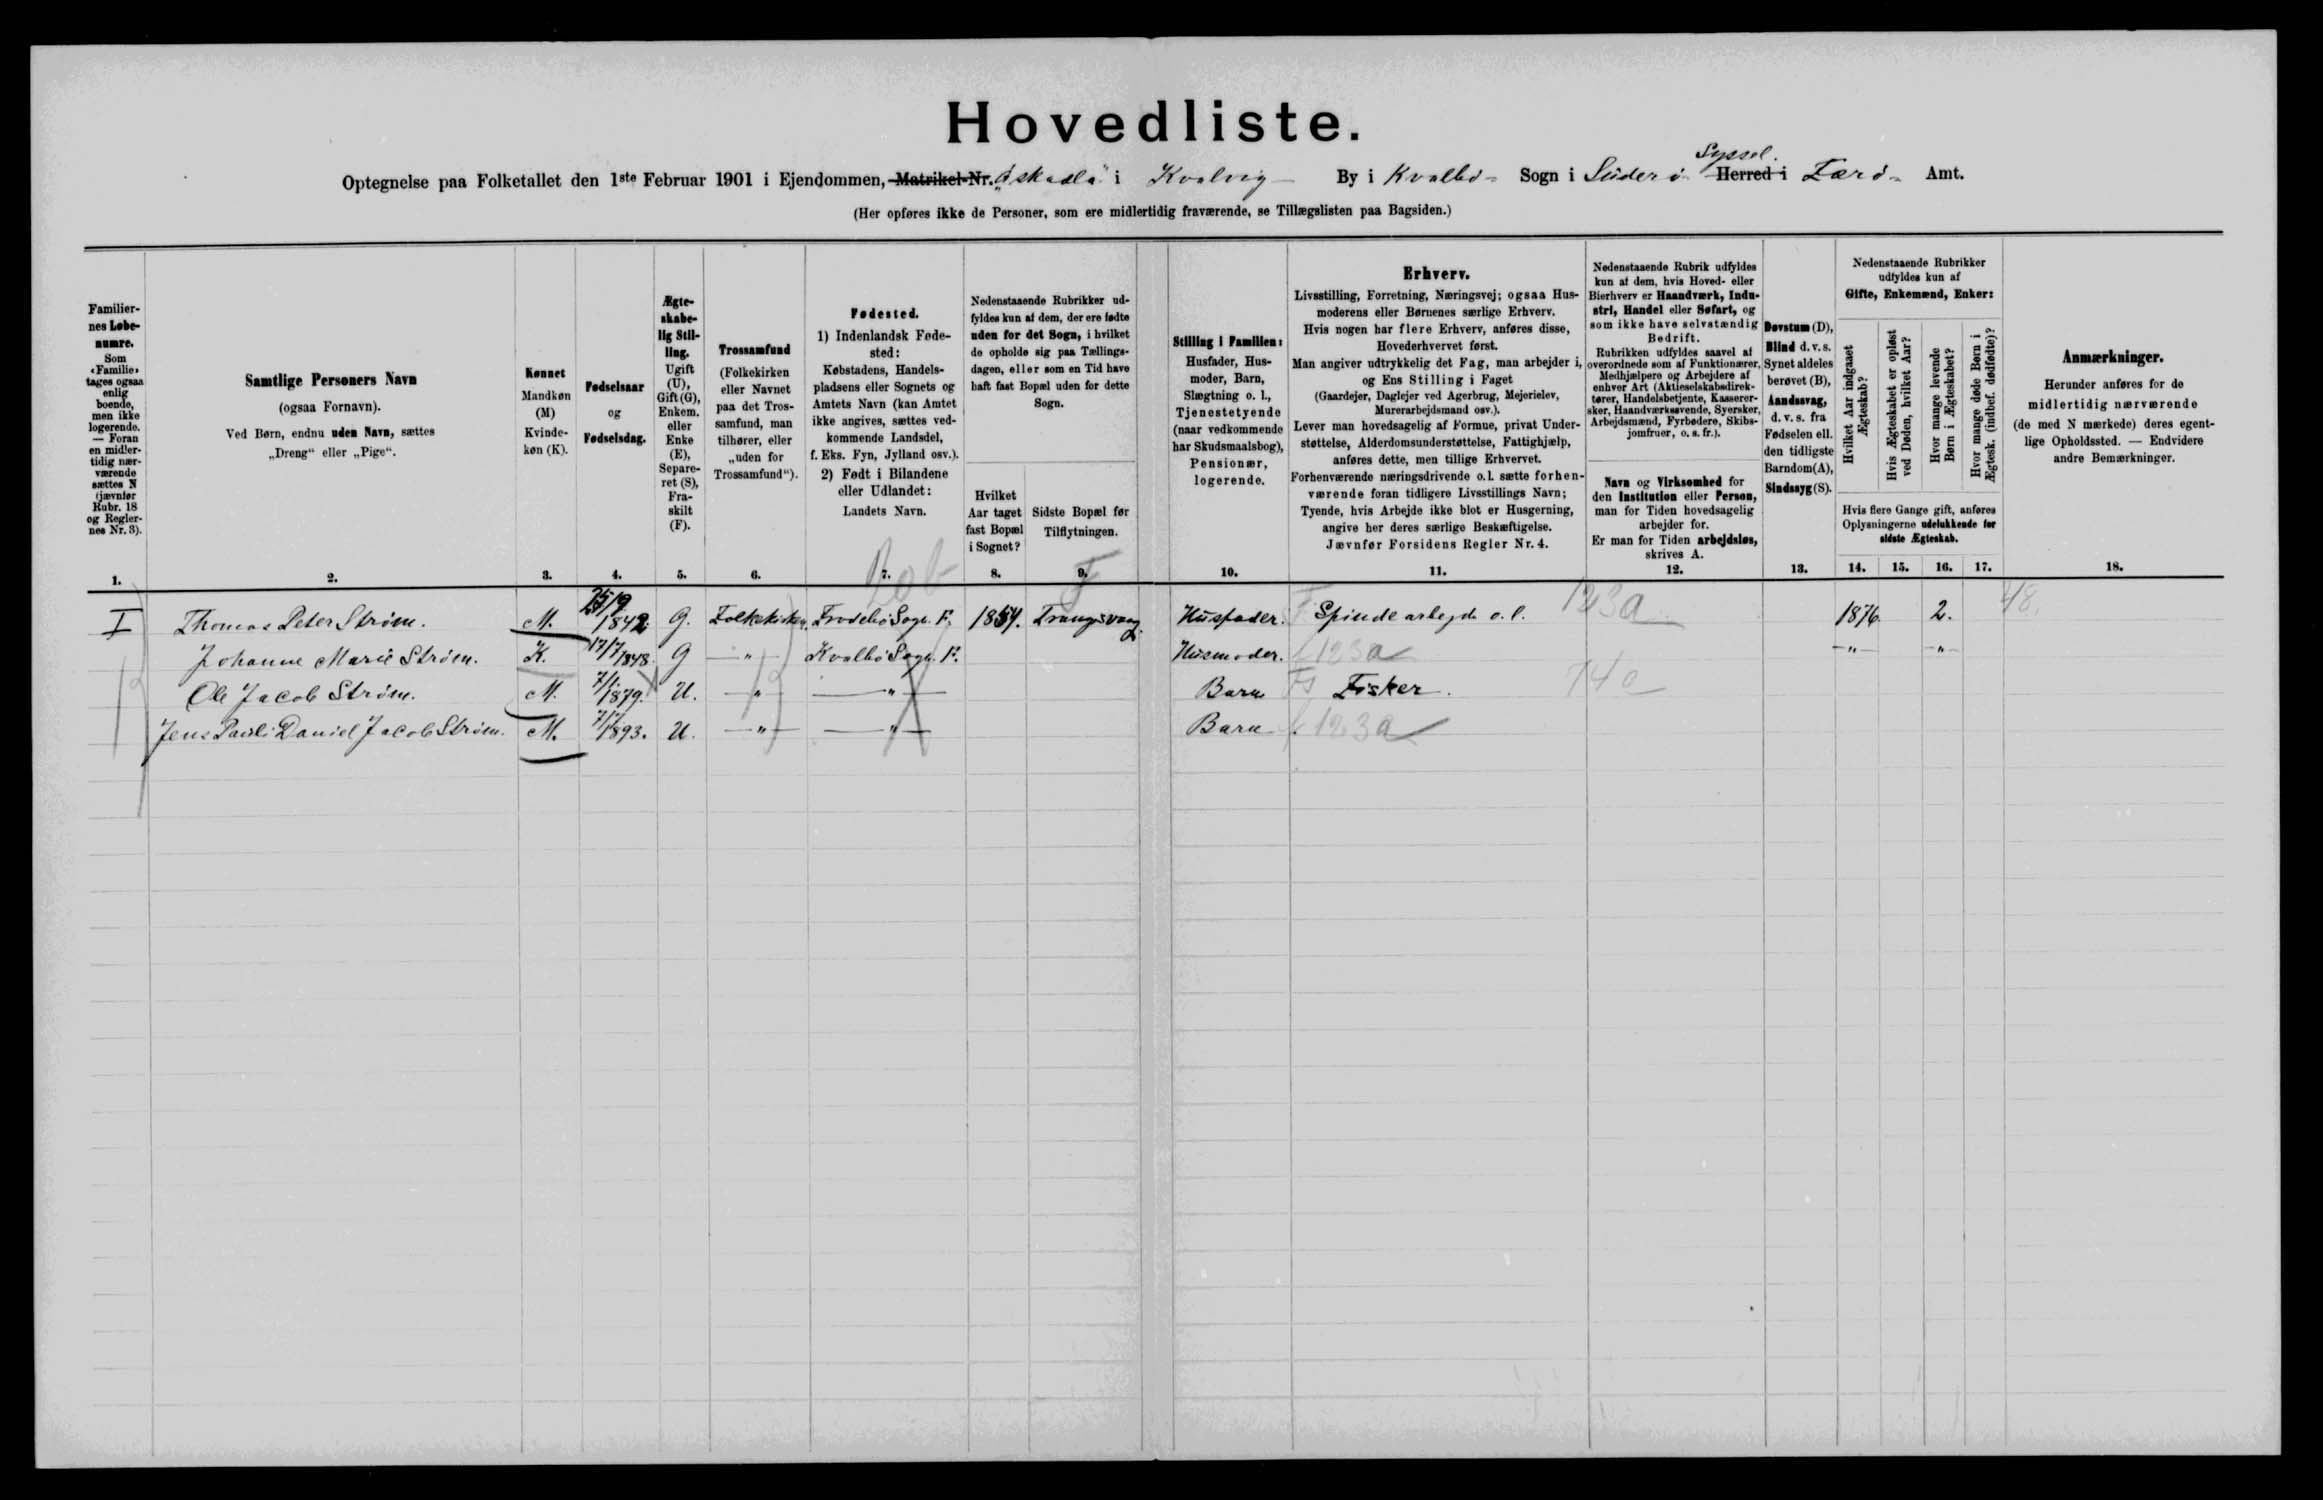 Hovedliste.
Syssel.
Optegnelse paa Folketallet den 1ste Februar 1901 i Ejendommen, Matrikel-Nr. i Kvalvig By i Kvalbö Sogn i Süderö Herred i Færö Amt.
(Her opføres ikke de Personer, som ere midlertidig fraværende, se Tillægslisten paa Bagsiden.)
Familier-
nes Løbe-
numre.
Som
‹Familie›
tages ogsaa
enlig
boende,
men ikke
logerende.
— Foran
en midler-
tidig nær-
værende
sættes N
(jævnfør
Rubr. 18
og Regler-
nes Nr. 3).
1.
Samtlige Personers Navn
(ogsaa Fornavn).
Ved Børn, endnu uden Navn, sættes
„Dreng“ eller „Pige“.
2.
Kønnet
Mandkøn
(M)
Kvinde-
køn (K).
3.
Fødselsaar
og
Fødselsdag.
4.
Ægte-
skabe-
lig Stil-
ling.
Ugift
(U),
Gift (G),
Enkem.
eller
Enke
(E),
Separe-
ret (S),
Fra-
skilt
(F).
5.
Trossamfund
(Folkekirken
eller Navnet
paa det Tros-
samfund, man
tilhører, eller
„uden for
Trossamfund“).
6.
Fødested.
1) Indenlandsk Føde-
sted:
Købstadens, Handels-
pladsens eller Sognets og
Amtets Navn (kan Amtet
ikke angives, sættes ved-
kommende Landsdel,
f. Eks. Fyn, Jylland osv.).
2) Født i Bilandene
eller Udlandet:
Landets Navn.
7.
Nedenstaaende Rubrikker ud-
fyldes kun af dem, der ere fødte
uden for det Sogn, i hvilket
de opholde sig paa Tællings-
dagen, eller som en Tid have
haft fast Bopæl uden for dette
Sogn.
Hvilket
Aar taget
fast Bopæl
i Sognet?
8.
Sidste Bopæl før
Tilflytningen.
9.
Stilling i Familien:
Husfader, Hus-
moder, Barn,
Slægtning o. l.,
Tjenestetyende
(naar vedkommende
har Skudsmaalsbog),
Pensionær,
logerende.
10.
Erhverv.
Livsstilling, Forretning, Næringsvej; ogsaa Hus-
moderens eller Børnenes særlige Erhverv.
Hvis nogen har flere Erhverv, anføres disse,
Hovederhvervet først.
Man angiver udtrykkelig det Fag, man arbejder i,
og Ens Stilling i Faget
(Gaardejer, Daglejer ved Agerbrug, Mejerielev,
Murerarbejdsmand osv.).
Lever man hovedsagelig af Formue, privat Under-
støttelse, Alderdomsunderstøttelse, Fattighjælp,
anføres dette, men tillige Erhvervet.
Forhenværende næringsdrivende o. l. sætte forhen-
værende foran tidligere Livsstillings Navn;
Tyende, hvis Arbejde ikke blot er Husgerning,
angive her deres særlige Beskæftigelse.
Jævnfør Forsidens Regler Nr. 4.
11.
Nedenstaaende Rubrik udfyldes
kun af dem, hvis Hoved- eller
Bierhverv er Haandværk, Indu-
stri, Handel eller Søfart, og
som ikke have selvstændig
Bedrift.
Rubrikken udfyldes saavel af
overordnede som af Funktionærer,
Medhjælpere og Arbejdere af
enhver Art (Aktieselskabsdirek-
tører, Handelsbetjente, Kasserer-
sker, Haandværkssvende, Syersker,
Arbejdsmænd, Fyrbødere, Skibs-
jomfruer, o. s. fr.).
Navn og Virksomhed for
den Institution eller Person,
man for Tiden hovedsagelig
arbejder for.
Er man for Tiden arbejdsløs,
skrives A.
12.
Døvstum (D),
Blind d. v. s.
Synet aldeles
berøvet (B),
Aandssvag,
d. v. s. fra
Fødselen ell.
den tidligste
Barndom (A),
Sindssyg (S).
13.
Nedenstaaende Rubrikker
udfyldes kun af
Gifte, Enkemænd, Enker:
Hvilket Aar indgaaet
Ægteskab?
Hvis Ægteskabet er opløst
ved Døden, hvilket Aar?
Hvor mange levende
Børn i Ægteskabet?
Hvor mange døde Børn i
Ægtesk. (indbef. dødfødte)?
Hvis flere Gange gift, anføres
Oplysningerne udelukkende for
sidste Ægteskab.
14. 15. 16. 17.
Anmærkninger.
Herunder anføres for de
midlertidig nærværende
(de med N mærkede) deres egent-
lige Opholdssted. — Endvidere
andre Bemærkninger.
18.
I Thomas Peter Ström. M. 25/9 1842. G. Folkekirken. Frodebö Sogn. F. 1854. Trangisvaag. Husfader. F Spinde arbejde o. l. 123a 1876. 2. 48.
Johanne Marie Ström. K. 17/7 1848. G — " — Kvalbö Sogn. F. Husmoder. 123a — " — — " —
Ole Jacob Ström. M. 7/1 1879. U. — " — — " — Barn Fisker. 74a
Jens Pauli Daniel Jacob Ström. M. 7/7 1893. U. — " — — " — Barn 123a